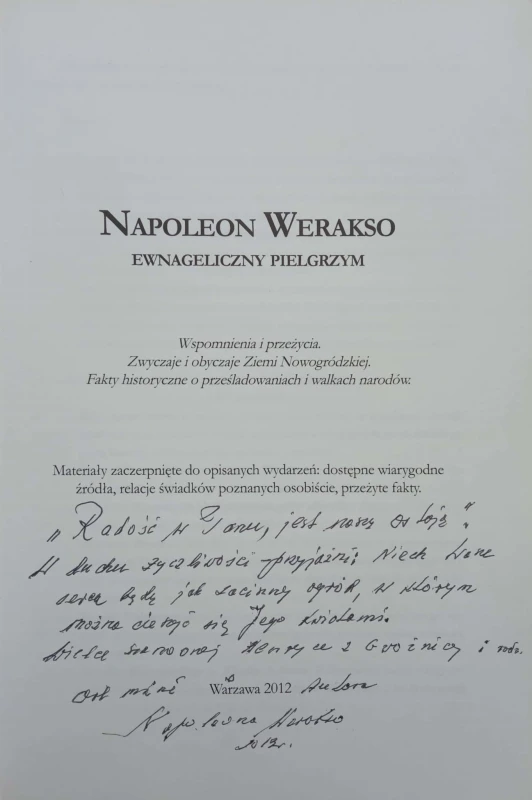 NAPOLEON WERAKSO
EWNAGELICZNY PIELGRZYM
Wspomnienia i przeżycia.
Zwyczaje i obyczaje Ziemi Nowogródzkiej.
Fakty historyczne o prześladowaniach i walkach narodów.
Materiały zaczerpnięte do opisanych wydarzeń: dostępne wiarygodne
źródła, relacje świadków poznanych osobiście, przeżyte fakty.
„Radość w Panu, jest naszą ostoją".
W duchu życzliwości i przyjaźni: Niech Wasze
serca będą jak zaciszny ogród, w którym
można cieszyć się Jego kwiatami.
Wielce szanownej z i rodz.
Warszawa 2012 Autora
Napoleona Werakso
2012r.